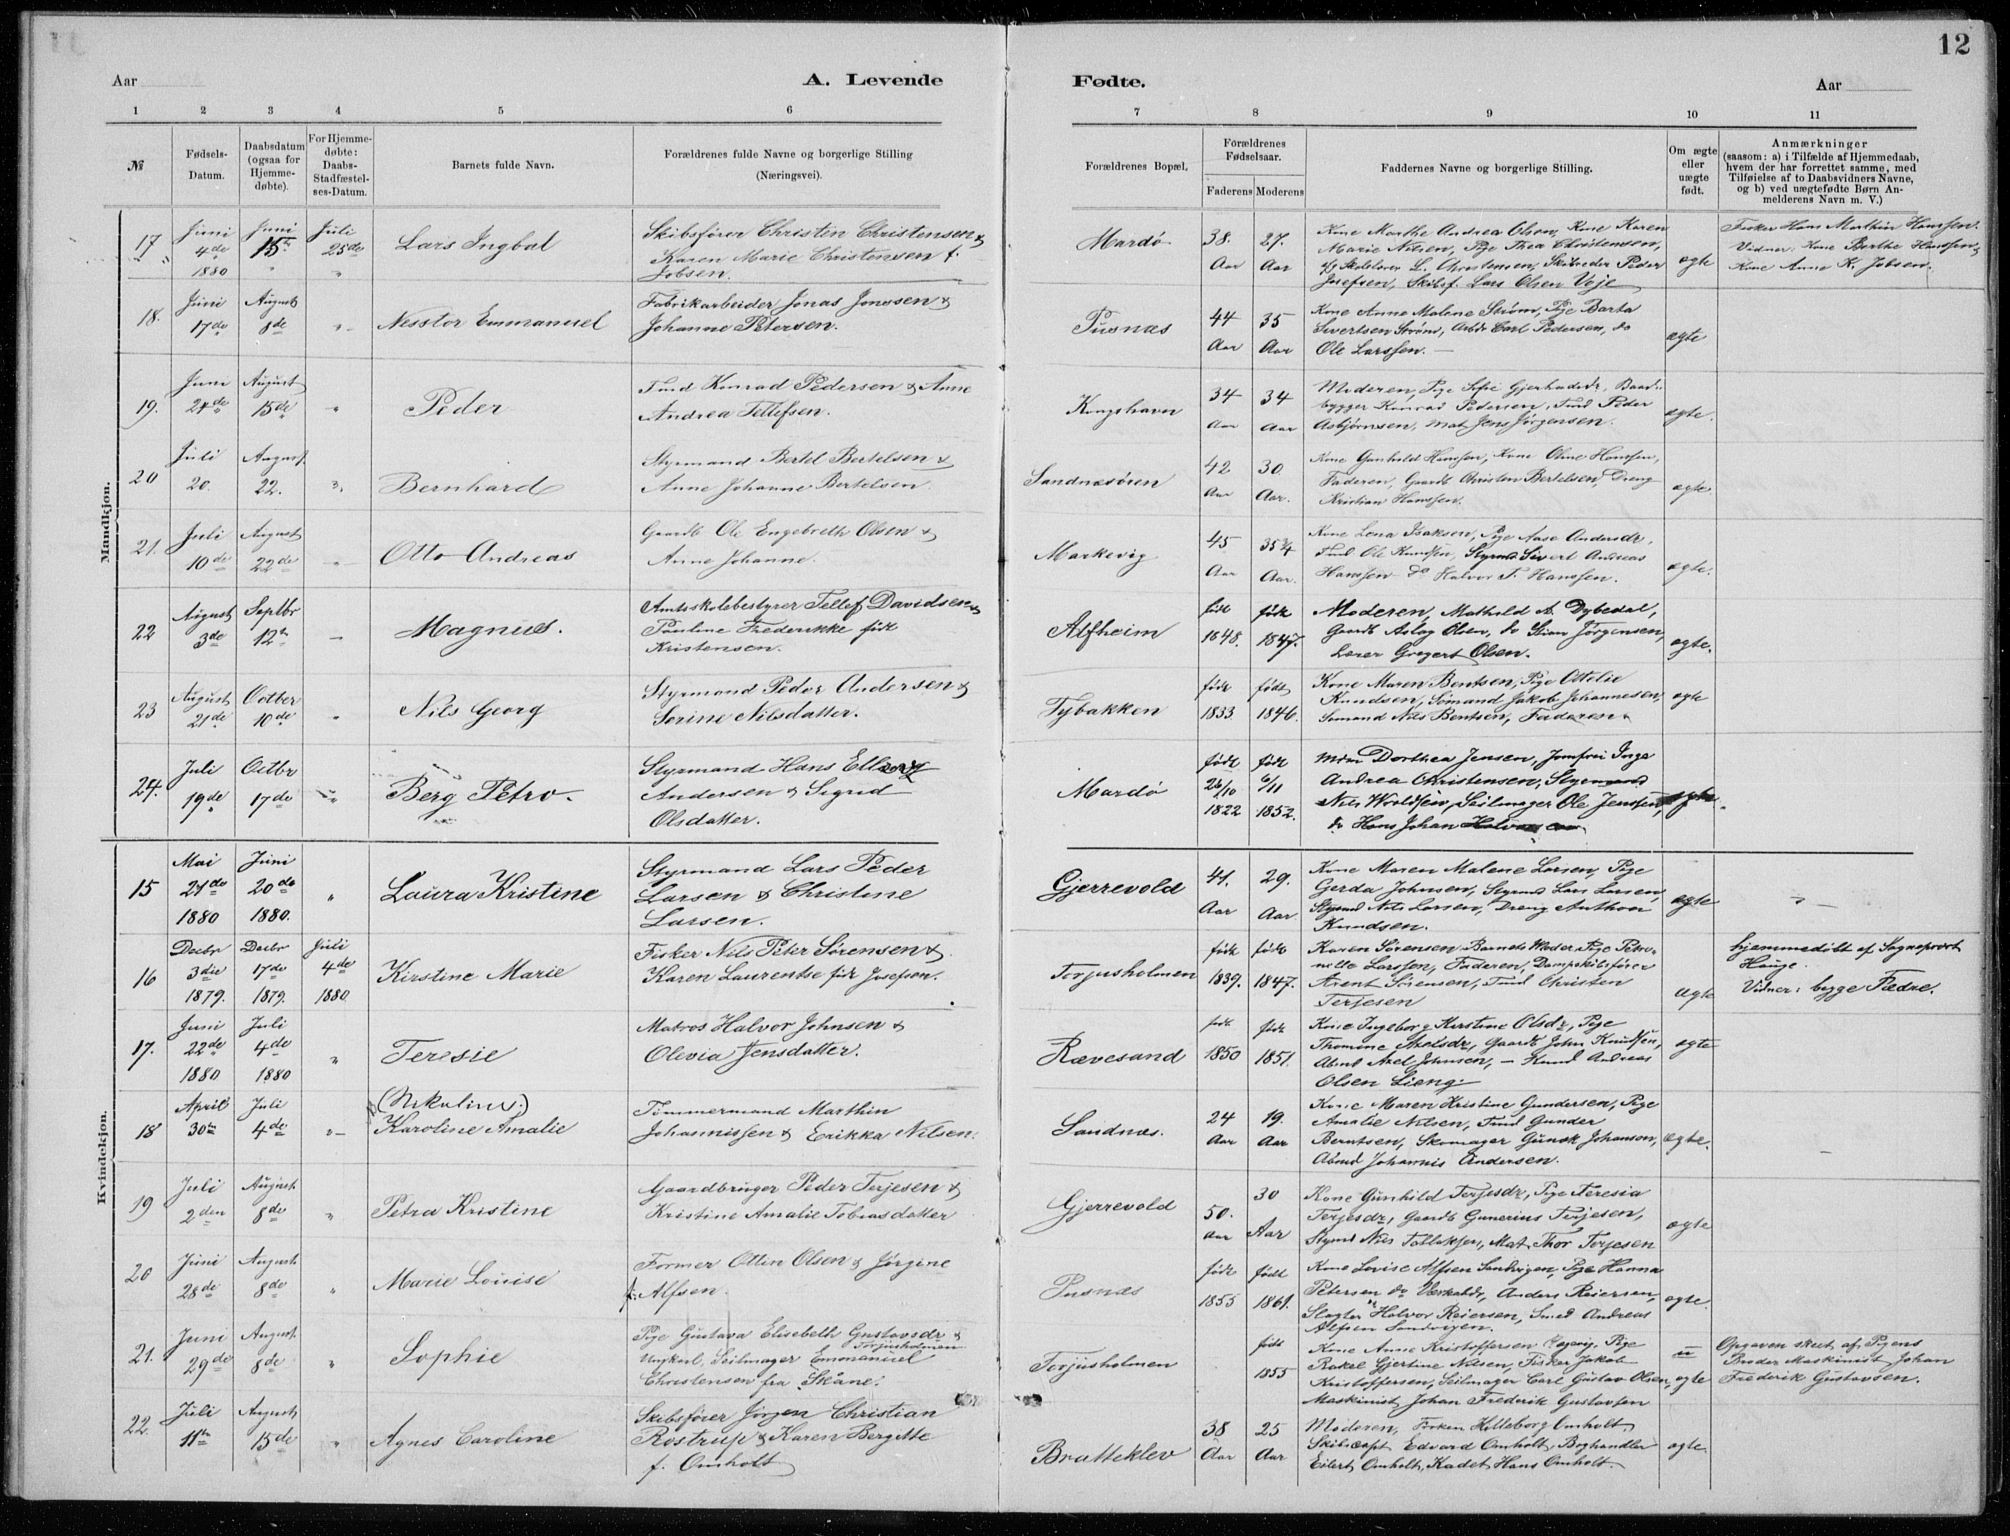 12
Aar
A. Levende
Fødte.
Aar
1 2 3 4 5 6 7 8 9 10 11
№
Fødsels-
Datum.
Daabsdatum
(ogsaa for
Hjemme-
døbte).
For Hjemme-
døbte:
Daabs-
Stadfæstel-
ses-Datum.
Barnets fulde Navn.
Forældrenes fulde Navne og borgerlige Stilling
(Næringsvei).
Forældrenes Bopæl.
Forældrenes
Fødselsaar.
Faderens Moderens
Faddernes Navne og borgerlige Stilling.
Om ægte
eller
uægte
født.
Anmærkninger
(saasom: a) i Tilfælde af Hjemmedaab,
hvem der har forrettet samme, med
Tilføielse af to Daabsvidners Navne,
og b) ved uægtefødte Børn An-
melderens Navn m. V.)
Mandkjøn.
17
Juni
4de
1880
Juni
15de
Juli
25de
Lars Ingbal
Skibsfører Christen Christensen &
Karen Marie Christensen f.
Jobsen.
Mardø
38. 27.
Aar Aar
Kone Marthe Andrea Olsen, Kone Karen
Marie Nilsen, Pige Thea Christensen,
Skoleholer L. Christensen, Skibreder Peder
Josefsen, Skibsf. Lars Olsen Veje
ægte
Fisker Hans Mathin Hanssen.
Vidner, Kone Berthe Hanssen &
Kone Anne K. Jobsen.
18.
Juni
17de
August
8de
Nesstor Emmanuel
Fabrikarbeider Jonas Jonasen &
Johanne Petersen.
Pusnæs
44 35
Aar Aar
Kone Anne Malene Strøm, Pige Berta
Sivertsen Strøm, Arbdr Carl Pedersen, do
Ole Larssen.
ægte
19.
Juni
24de
August
15de
Peder
Tmd Konrad Pedersen & Anne
Andrea Tellefsen.
Kongshavn
34 34
Aar Aar
Moderen, Pige Sofie Gjerhadsdr, Baad-
bygger Konrad Pedersen, Tmd Peder
Asbjørnsen, Mat Jens Jørgensen.
ægte.
20
Juli
20.
August
22.
Bernhard
Styrmand Bertel Bertelsen &
Anne Johanne Bertelsen.
Sandnæsøren
42 30
Aar Aar.
Kone Gunhild Hanssen, Kone Oline Hanssen,
Faderen, Gaardb Christen Bertelsen, Dreng
Kristian Hanssen.
ægte
21.
Juli
10de
August
22de
Otto Andreas
Gaardb Ole Engebreth Olsen &
Anne Johanne.
Markevig
45 35¾
Aar Aar.
Kone Lena Isaksen, Pige Aase Andersdr,
Tmd Ole Knudsen, Styrmd Sivert Andreas
Hanssen do Halvor T. Hanssen.
ægte.
22
August
3de
Septbr
12te
Magnus.
Amtsskolebestyrer Tellef Davidsen &
Pauline Frederikke født
Kristensen.
Alfheim
født født
1848. 1847.
Moderen, Mathild A. Dybedal,
Gaardb Aslag Olsen, do Stian Jørgensen,
Lærer Gregert Olsen.
ægte.
23
August
21de
Octber
10de
Nils Georg
Styrmand Peder Andersen &
Serine Nilsdatter.
Tybakken
født født
1833 1846.
Kone Maren Bentsen, Pige Ottelie
Knudsen, Sømand Jakob Johannesen,
Sømand Nils Bentsen, Faderen.
ægte
24.
Juli
19de
Octbr
17de
Berg Petro.
Styrmand Hans
Andersen & Sigrid
Olsdatter.
Mardø
født født
26/10 6/11
1822 1852.
Dorthea Jensen, Jomfru Inge
Andrea Christensen, Styrmand
Nils Woldsen, Seilmager Ole Jenssen,
do Hans Johan
ægte.
Kvindekjøn.
15
Mai
21de
1880
Juni
20de
1880.
Laura Kristine
Styrmand Lars Peder
Larsen & Christine
Larsen.
Gjerrevold
41. 29.
Aar Aar
Kone Maren Malene Larsen, Pige
Gerda Johnsen, Styrmd Lars Larsen,
Styrmd Nils Larsen, Dreng Anthon
Knudsen.
ægte
16
Decbr
3die
1879.
Decbr
17de
1879.
Juli
4de
1880
Kirstine Marie
Fisker Nils Peter Sørensen &
Karen Laurentse født Josefson.
Torjusholmen
født født
1839. 1847.
Karen Sørensen Barnets Moder, Pige Petro-
nelle Larssen, Faderen, Dampskibsfører
Arent Sørensen, Tmd Christen
Terjesen
ægte
hjemmedøbt af Sogneprest
Hauge.
Vidner: begge Fædre.
17.
Juni
22de
1880
Juli
4de
1880
Teresie
Matros Halvor Johnsen &
Olevia Jensdatter.
Rævesand
født født
1850 1851.
Kone Ingeborg Kirstine Olsdr, Pige
Thomine Axelsdr, Gaardb John Knudsen,
Abmd Axel Johnsen, – Knud Andreas
Olsen Lieng.
ægte
18
April
30te
Juli
4de
(Nikoline.)
Karoline Amalie
Tømmermand Marthin
Johannissen & Erikka Nilsen.
Sandnæs.
24 19.
Aar Aar
Kone Maren Kristine Gundersen, Pige
Amalie Nilsen, Tmd Gunder
Berntsen, Skomager Gunsk Johanson,
Abmd Johannis Andersen.
ægte.
19
Juli
2den
August
8de
Petra Kristine
Gaardbruger Peder Terjesen &
Kristine Amalie Tobiasdatter
Gjerrevold
50. 30
Aar Aar
Kone Gunhild Terjesdr, Pige Teresia
Terjesdr, Gaardb Gunerius Terjesen,
Styrmd Nils Tallaksen, Mat. Thor Terjesen
ægte
20
Juni
28de
August
8de
Marie Louise
Former Otten Olsen & Jørgine
f. Alfsen.
Pusnæs
født født
1855 1861.
Kone Lovise Alfsen Sandvigen, Pige Hanna
Petersen do Værksbdr, Anders Reiersen,
Slagter Halvor Reiersen, Smed Andreas
Alfsen Sandvigen.
ægte.
21.
Juni
29de
August
8de
Sophie
Pige Gustava Elisebeth Gustavsdr &
Torjusholmen
Ungkarl, Seilmager Emmanuel
Christensen fra Skåne.
Torjusholmen
født
1855
Kone Anne Kristoffersen, Pige
Rakel Gjertine Nilsen, Fisker Jakob
Kristoffersen, Seilmager Carl Gustav Olsen,
Maskinist Johan Frederik Gustavsen
u
ægte
Opgaven skeet af Pigens
Broder Maskinist Johan
Frederik Gustavsen.
22.
Juli
11te
August
15de
Agnes Caroline
Skibsfører Jørgen Christian
Rostrup & Karen Bergitte
f. Omholt
Bratteklev
38 25
Aar Aar
Moderen, Frøken Hilleborg Omholt,
Skibscapt Edvard Omholt, Boghandler
Eilert Omholt, Kadet Hans Omholt.
ægte